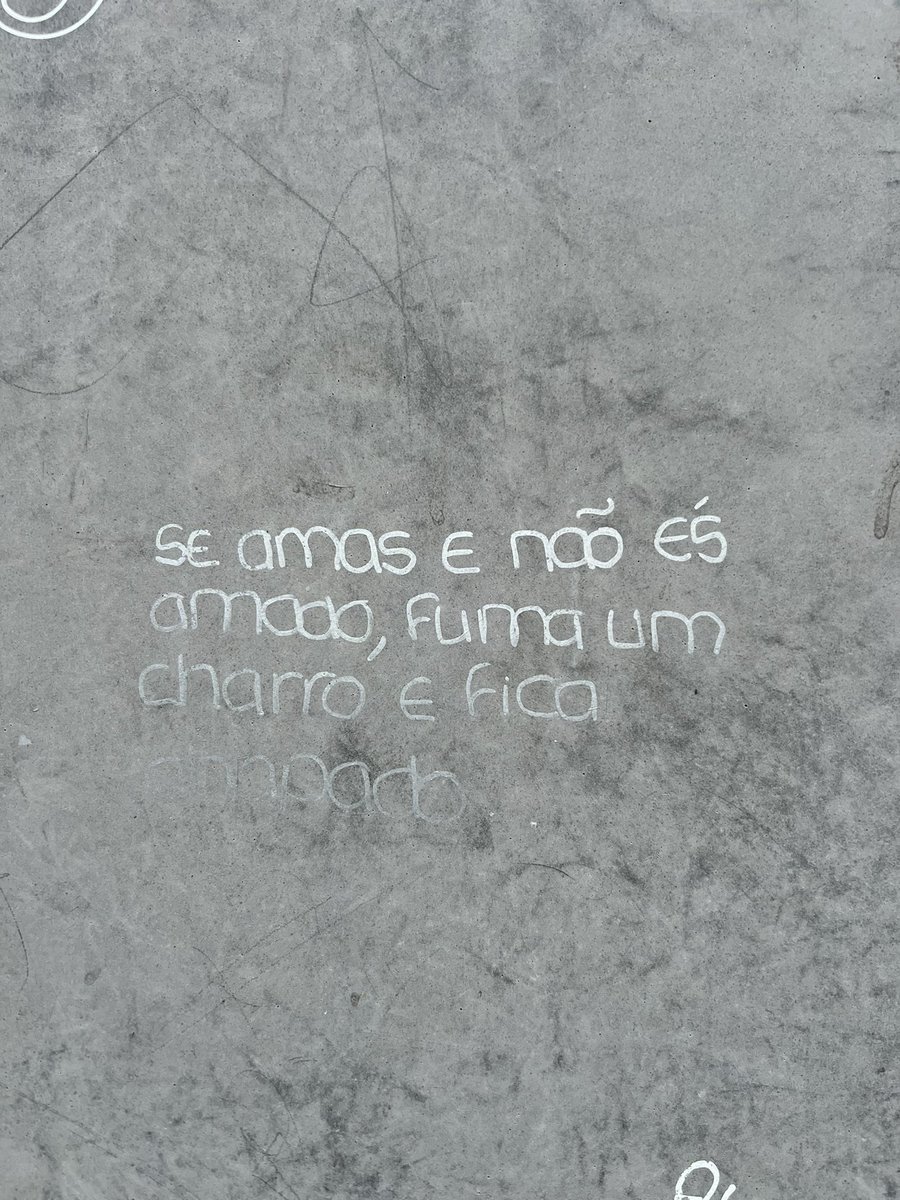 Se amas e não és
amado, fuma um
charro e fica